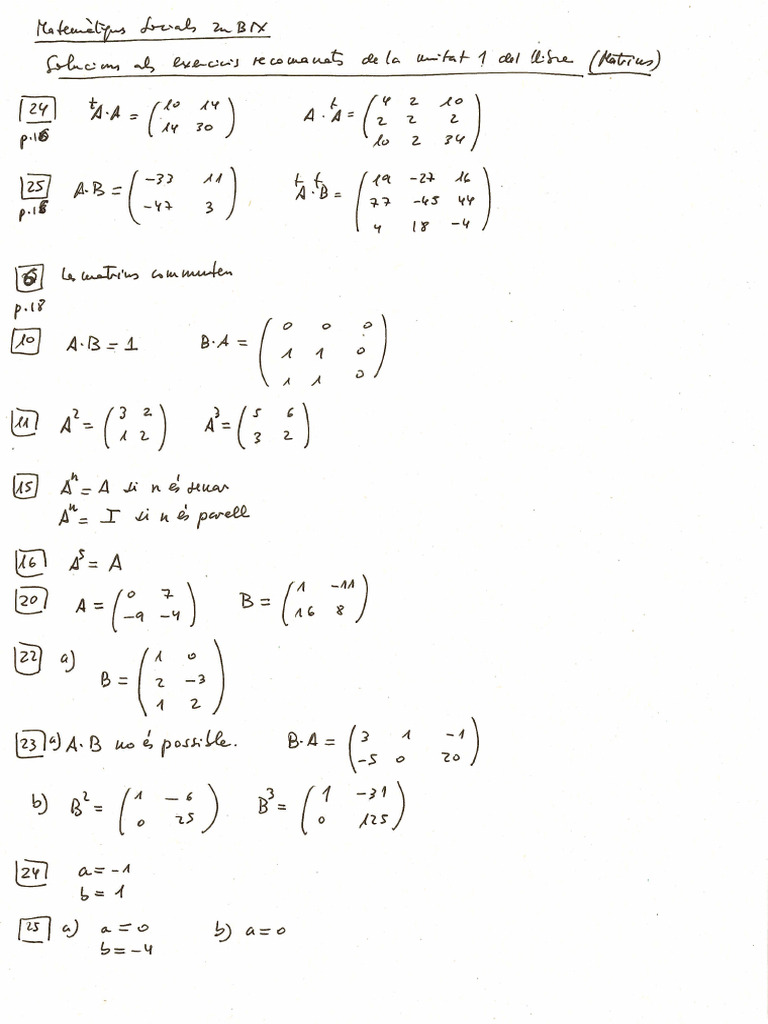 Matemàtiques Socials 2n BTX
Solucions als exercicis recomanats de la unitat 1 del llibre (Matrius)
24 p.16 ᵗA·A = (10 14; 14 30) A·ᵗA = (4 2 10; 2 2 2; 10 2 34)
25 p.16 A·B = (-33 11; -47 3) ᵗA·ᵗB = (19 -27 16; 77 -45 44; 4 18 -4)
6 les matrius commuten
p.18
10 A·B = 1 B·A = (0 0 0; 1 1 0; 1 1 0)
11 A² = (3 2; 1 2) A³ = (5 6; 3 2)
15 Aⁿ = A si n és senar
Aⁿ = I si n és parell
16 A⁵ = A
20 A = (0 7; -9 -4) B = (1 -11; 16 8)
22 a) B = (1 0; 2 -3; 1 2)
23 a) A·B no és possible. B·A = (3 1 -1; -5 0 20)
b) B² = (1 -6; 0 25) B³ = (1 -31; 0 125)
24 a = -1
b = 1
25 a) a = 0 b) a = 0
b = -4